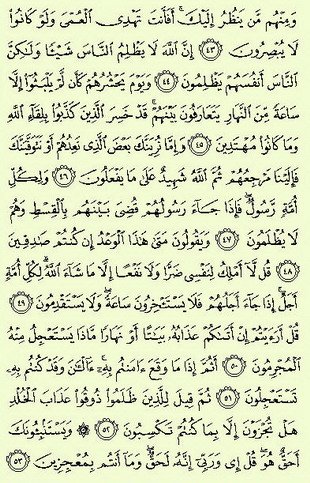 وَمِنْهُم مَّن يَنظُرُ إِلَيْكَ ۚ أَفَأَنتَ تَهْدِى ٱلْعُمْىَ وَلَوْ كَانُوا۟
لَا يُبْصِرُونَ ﴿٤٣﴾ إِنَّ ٱللَّهَ لَا يَظْلِمُ ٱلنَّاسَ شَيْـًٔا وَلَـٰكِنَّ
ٱلنَّاسَ أَنفُسَهُمْ يَظْلِمُونَ ﴿٤٤﴾ وَيَوْمَ يَحْشُرُهُمْ كَأَن لَّمْ يَلْبَثُوٓا۟ إِلَّا
سَاعَةً مِّنَ ٱلنَّهَارِ يَتَعَارَفُونَ بَيْنَهُمْ ۚ قَدْ خَسِرَ ٱلَّذِينَ كَذَّبُوا۟ بِلِقَآءِ ٱللَّهِ
وَمَا كَانُوا۟ مُهْتَدِينَ ﴿٤٥﴾ وَإِمَّا نُرِيَنَّكَ بَعْضَ ٱلَّذِى نَعِدُهُمْ أَوْ نَتَوَفَّيَنَّكَ
فَإِلَيْنَا مَرْجِعُهُمْ ثُمَّ ٱللَّهُ شَهِيدٌ عَلَىٰ مَا يَفْعَلُونَ ﴿٤٦﴾ وَلِكُلِّ
أُمَّةٍ رَّسُولٌ ۖ فَإِذَا جَآءَ رَسُولُهُمْ قُضِىَ بَيْنَهُم بِٱلْقِسْطِ وَهُمْ
لَا يُظْلَمُونَ ﴿٤٧﴾ وَيَقُولُونَ مَتَىٰ هَـٰذَا ٱلْوَعْدُ إِن كُنتُمْ صَـٰدِقِينَ
﴿٤٨﴾ قُل لَّآ أَمْلِكُ لِنَفْسِى ضَرًّا وَلَا نَفْعًا إِلَّا مَا شَآءَ ٱللَّهُ ۗ لِكُلِّ أُمَّةٍ
أَجَلٌ ۚ إِذَا جَآءَ أَجَلُهُمْ فَلَا يَسْتَـْٔخِرُونَ سَاعَةً ۖ وَلَا يَسْتَقْدِمُونَ ﴿٤٩﴾
قُلْ أَرَءَيْتُمْ إِنْ أَتَىٰكُمْ عَذَابُهُۥ بَيَـٰتًا أَوْ نَهَارًا مَّاذَا يَسْتَعْجِلُ مِنْهُ
ٱلْمُجْرِمُونَ ﴿٥٠﴾ أَثُمَّ إِذَا مَا وَقَعَ ءَامَنتُم بِهِۦٓ ۚ ءَآلْـَٔـٰنَ وَقَدْ كُنتُم بِهِۦ
تَسْتَعْجِلُونَ ﴿٥١﴾ ثُمَّ قِيلَ لِلَّذِينَ ظَلَمُوا۟ ذُوقُوا۟ عَذَابَ ٱلْخُلْدِ
هَلْ تُجْزَوْنَ إِلَّا بِمَا كُنتُمْ تَكْسِبُونَ ﴿٥٢﴾ ۞ وَيَسْتَنۢبِـُٔونَكَ
أَحَقٌّ هُوَ ۖ قُلْ إِى وَرَبِّىٓ إِنَّهُۥ لَحَقٌّ ۖ وَمَآ أَنتُم بِمُعْجِزِينَ ﴿٥٣﴾